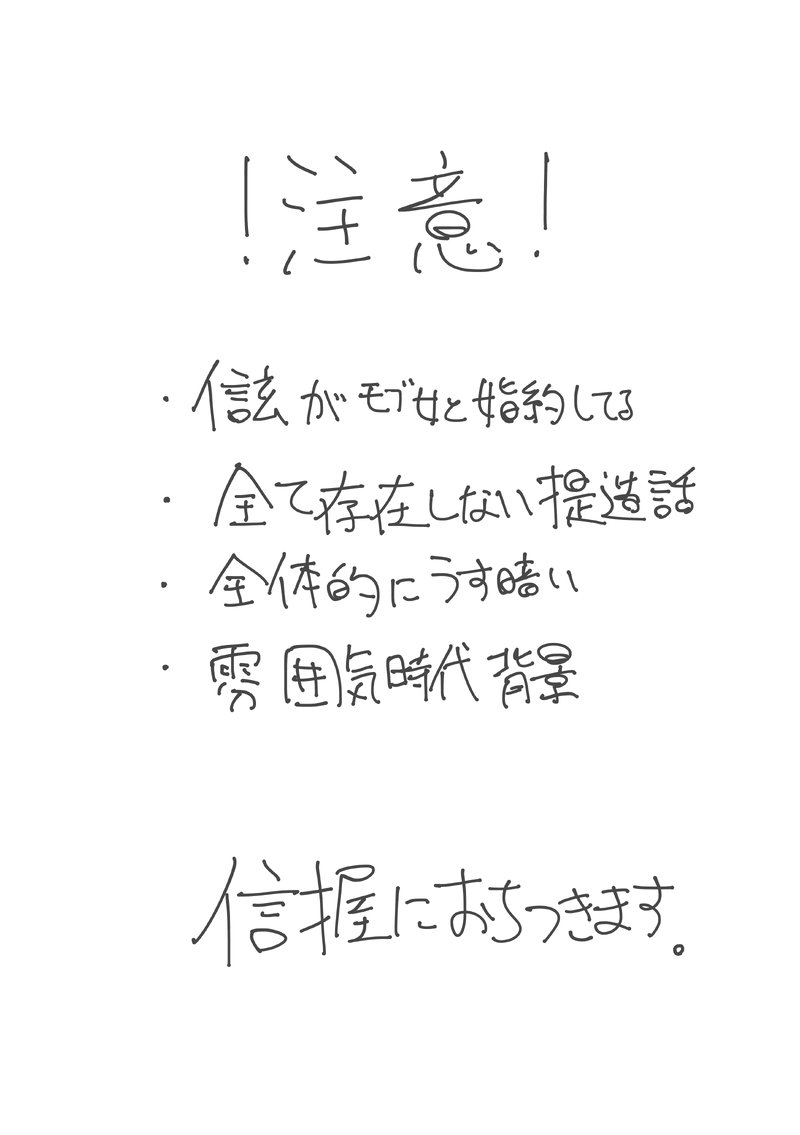 ！注意！
・信玄がモブ女と婚約してる
・全て存在しない捏造話
・全体的にうす暗い
・雰囲気時代背景
信握におちつきます。